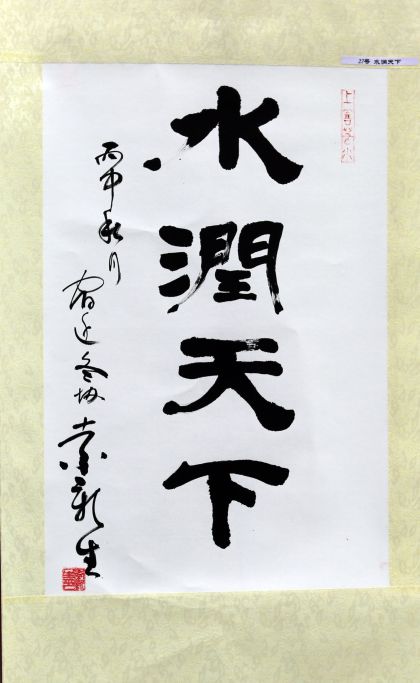 27号 水润天下
上善若水
水潤天下
丙申秋月